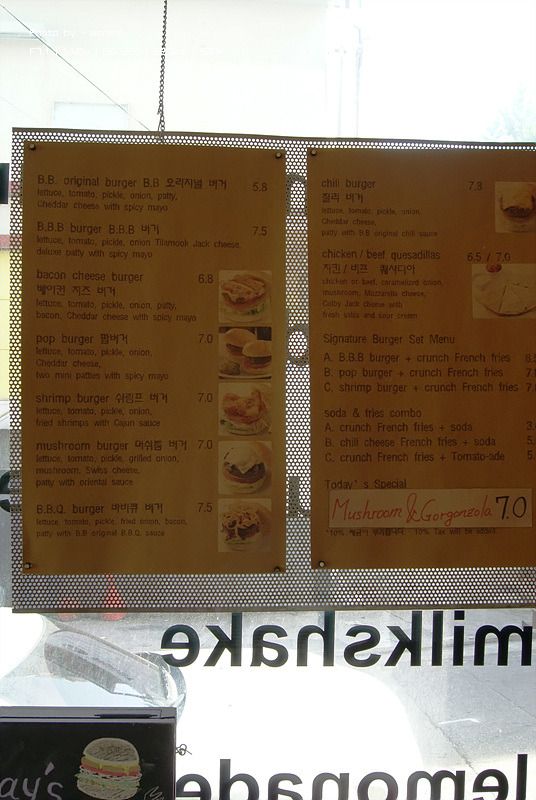 Photo by
B.B. original burger B.B 오리지널 버거 5.8
lettuce, tomato, pickle, onion, patty,
Cheddar cheese with spicy mayo
B.B.B burger B.B.B 버거 7.5
lettuce, tomato, pickle, onion Tillamook Jack cheese,
deluxe patty with spicy mayo
bacon cheese burger 6.8
베이컨 치즈 버거
lettuce, tomato, pickle, onion, patty,
bacon, Cheddar cheese with spicy mayo
pop burger 팝버거 7.0
lettuce, tomato, pickle, onion,
Cheddar cheese,
two mini patties with spicy mayo
shrimp burger 쉬림프 버거 7.0
lettuce, tomato, pickle, onion,
fried shrimps with Cajun sauce
mushroom burger 머쉬룸 버거 7.0
lettuce, tomato, pickle, grilled onion,
mushroom, Swiss cheese,
patty with oriental sauce
B.B.Q. burger 바비큐 버거 7.5
lettuce, tomato, pickle, fried onion, bacon,
patty with B.B original B.B.Q. sauce
chili burger 7.8
칠리 버거
lettuce, tomato, pickle, onion,
Cheddar cheese,
patty with B.B original chili sauce
chicken / beef quesadillas 6.5 / 7.0
치킨 / 비프 퀘사디아
chicken or beef, caramelized onion,
mushroom, Mozzarella cheese,
Colby Jack cheese with
fresh salsa and sour cream
Signature Burger Set Menu
A. B.B.B burger + crunch French fries
B. pop burger + crunch French fries
C. shrimp burger + crunch French fries
soda & fries combo
A. crunch French fries + soda
B. chili cheese French fries + soda
C. crunch French fries + Tomato-ade
Today's Special
Mushroom & Gorgonzola 7.0
10% Tax will be added.
milkshake
lemonade
ay's